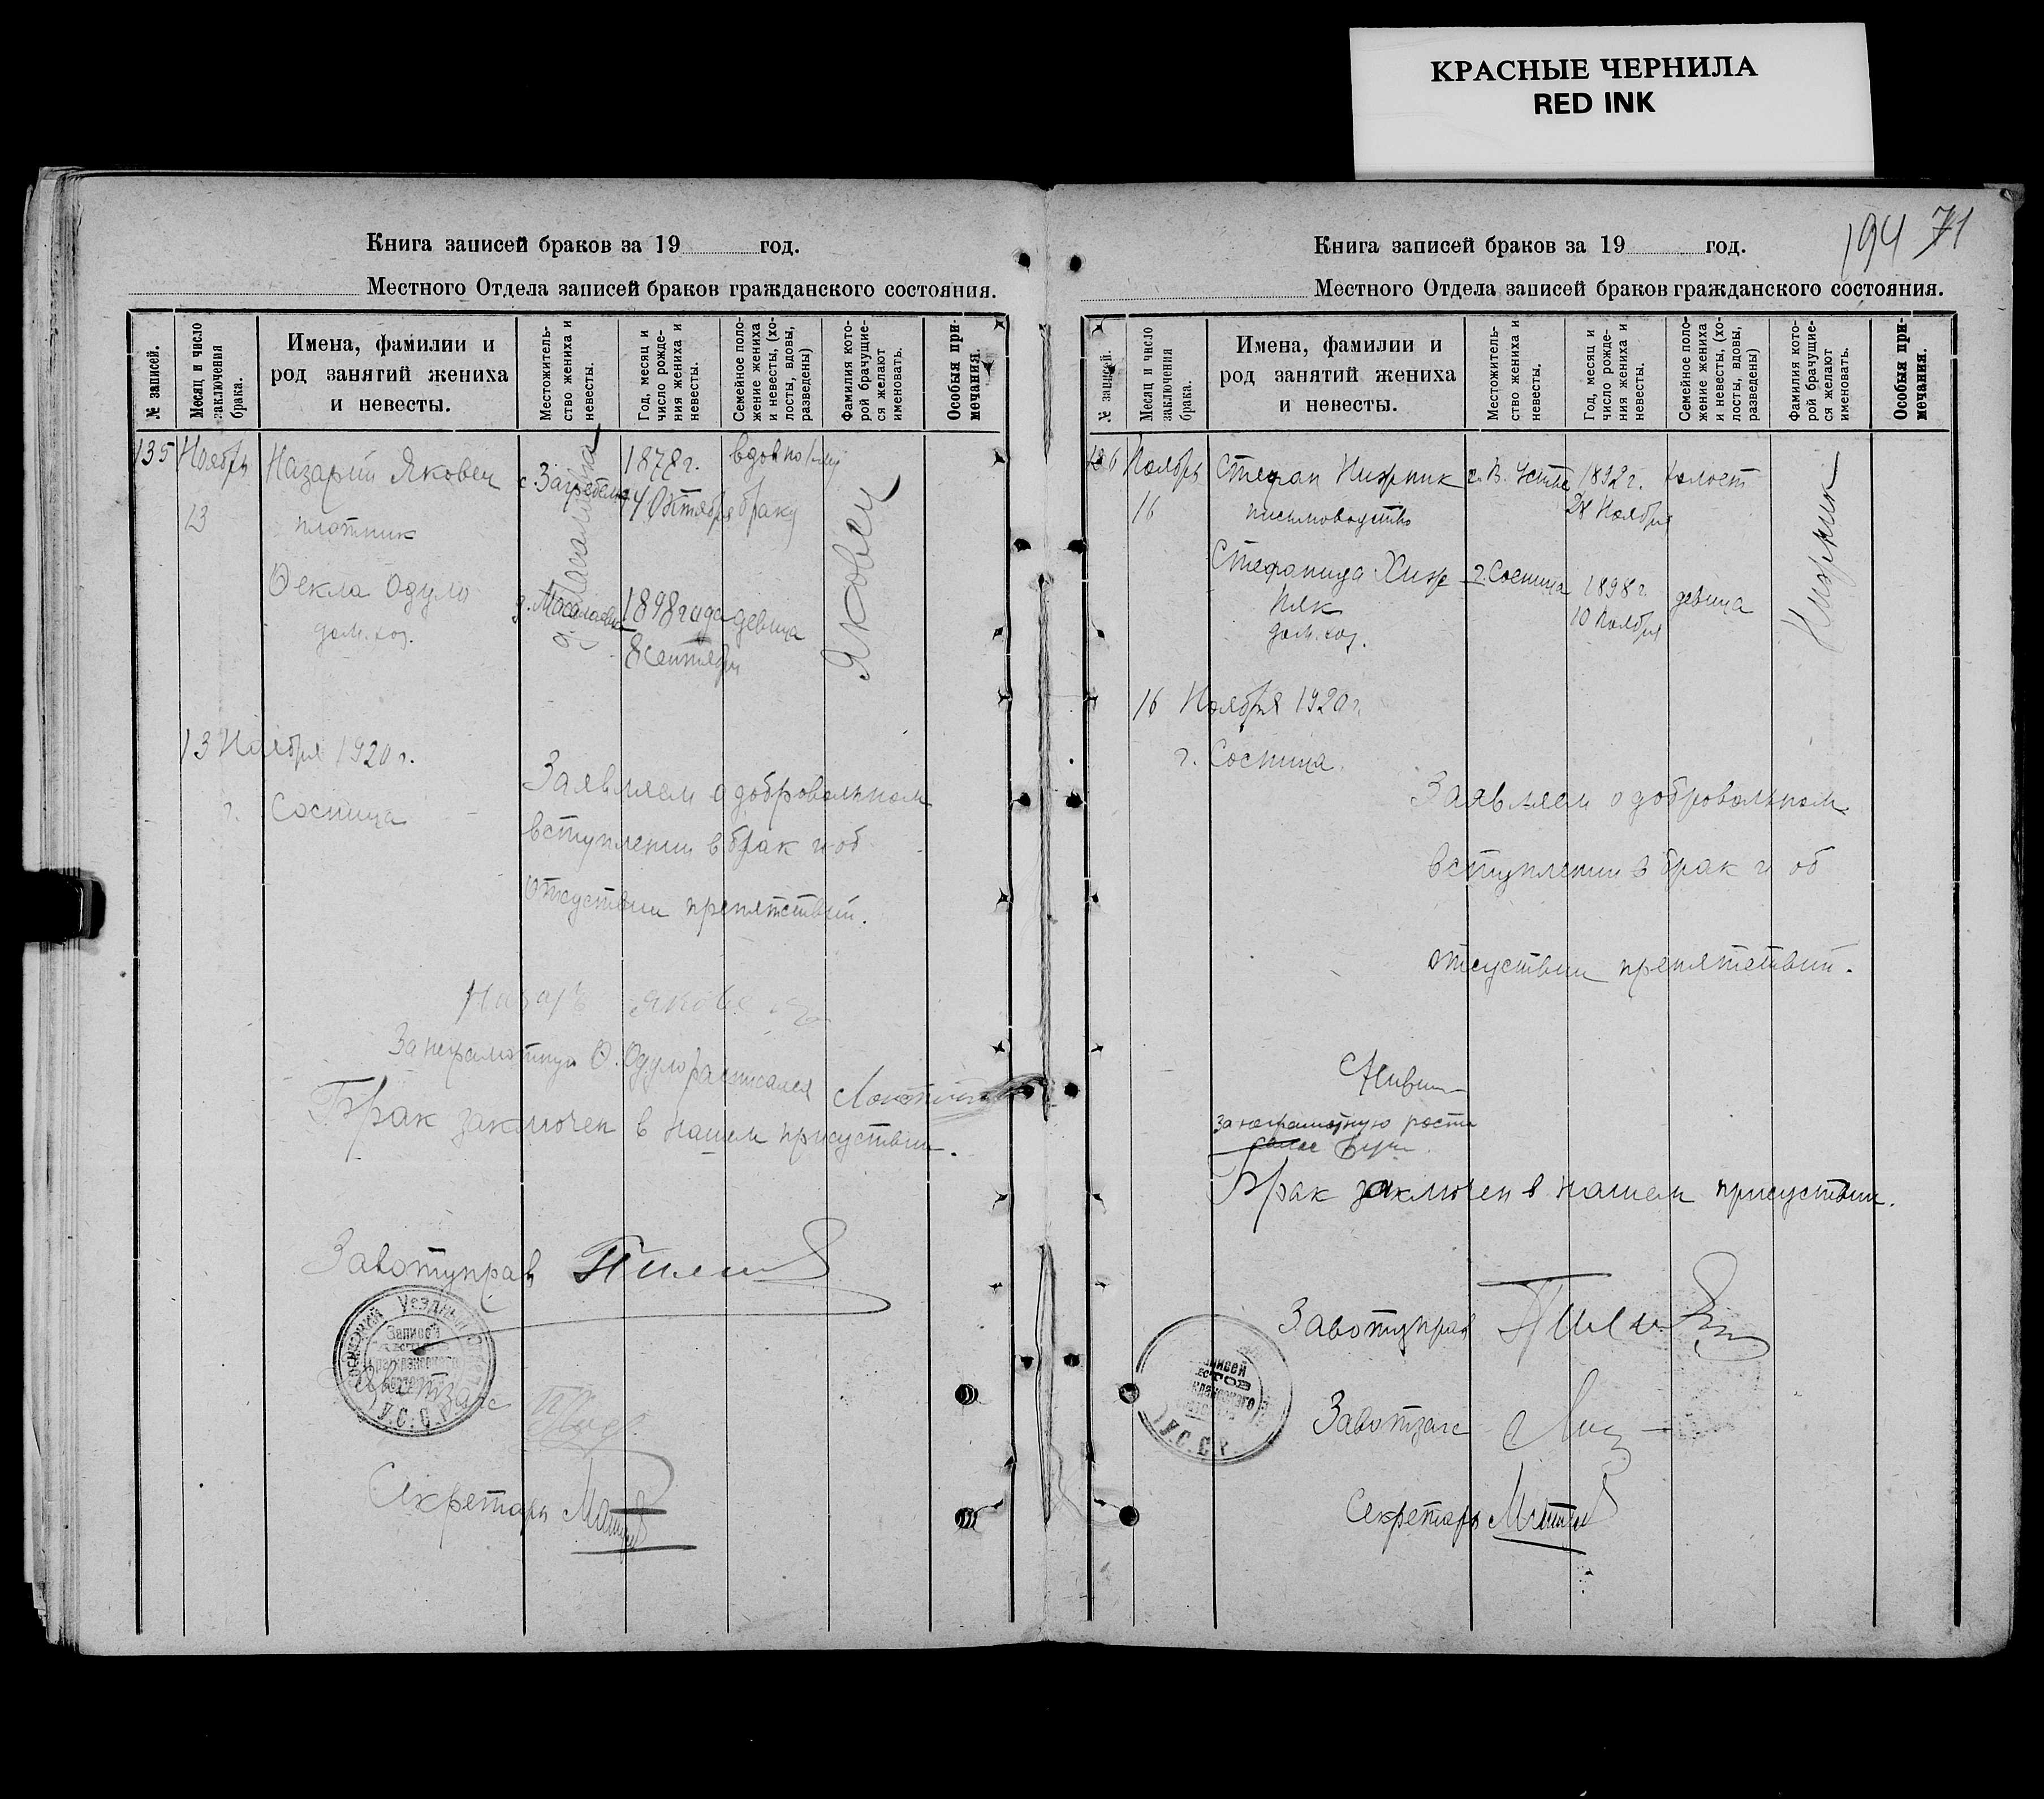 КРАСНЫЕ ЧЕРНИЛА
RED INK
Книга записей браков за 19 год.
Местного Отдела записей браков гражданского состояния.
№ записей.
Месяц и число заключения брака.
Имена, фамилии и
род занятий жениха
и невесты.
Местожитель-
ство жениха и
невесты.
Год, месяц и
число рожде-
ния жениха и
невесты.
Семейное поло-
жение жениха
и невесты, (хо-
лосты, вдовы,
разведены)
Фамилия кото-
рой брачущие-
ся желают
именовать.
Особыя при-
мечания.
135 Ноябрь Назарий Яковец с. Загребелье 1878 г. вдов по
13 плотник 14 Октября браку
Яковец
Фекла Одуло д. 1898 года девица
дом. хоз. 8 Сентября
13 Ноября 1920 г.
г. Сосница
Заявляем о добровольном
вступлении в брак и об
отсуствии препятствий.
Назаръ
За неграмотную Ф. Одуло расписался
Брак заключен в нашем присуствии.
Завотуправ
Уездный
Записей
Гражданского
У.С.С.Р.
Завотзагс
Секретарь
194 71
Книга записей браков за 19 год.
Местного Отдела записей браков гражданского состояния.
№ записей.
Месяц и число
заключения
брака.
Имена, фамилии и
род занятий жениха
и невесты.
Местожитель-
ство жениха и
невесты.
Год, месяц и
число рожде-
ния жениха и
невесты.
Семейное поло-
жение жениха
и невесты, (хо-
лосты, вдовы,
разведены)
Фамилия кото-
рой брачущие-
ся желают
именовать.
Особыя при-
мечания.
136 Ноябрь Стефан Нижник с. В. Устье 1892 г. холост
16 письмоводство Ноября
Нижник
Стефанида Хиж г. Сосница 1898 г. девица
няк 10 Ноября
дом. хоз.
16 Ноября 1920 г.
г. Сосница
Заявляем о добровольном
вступлении в брак и об
отсуствии препятствий.
за неграмотную роспи
Брак заключен в нашем присуствии.
Завотуправ
У.С.С.Р.
Завотзагс
Секретарь